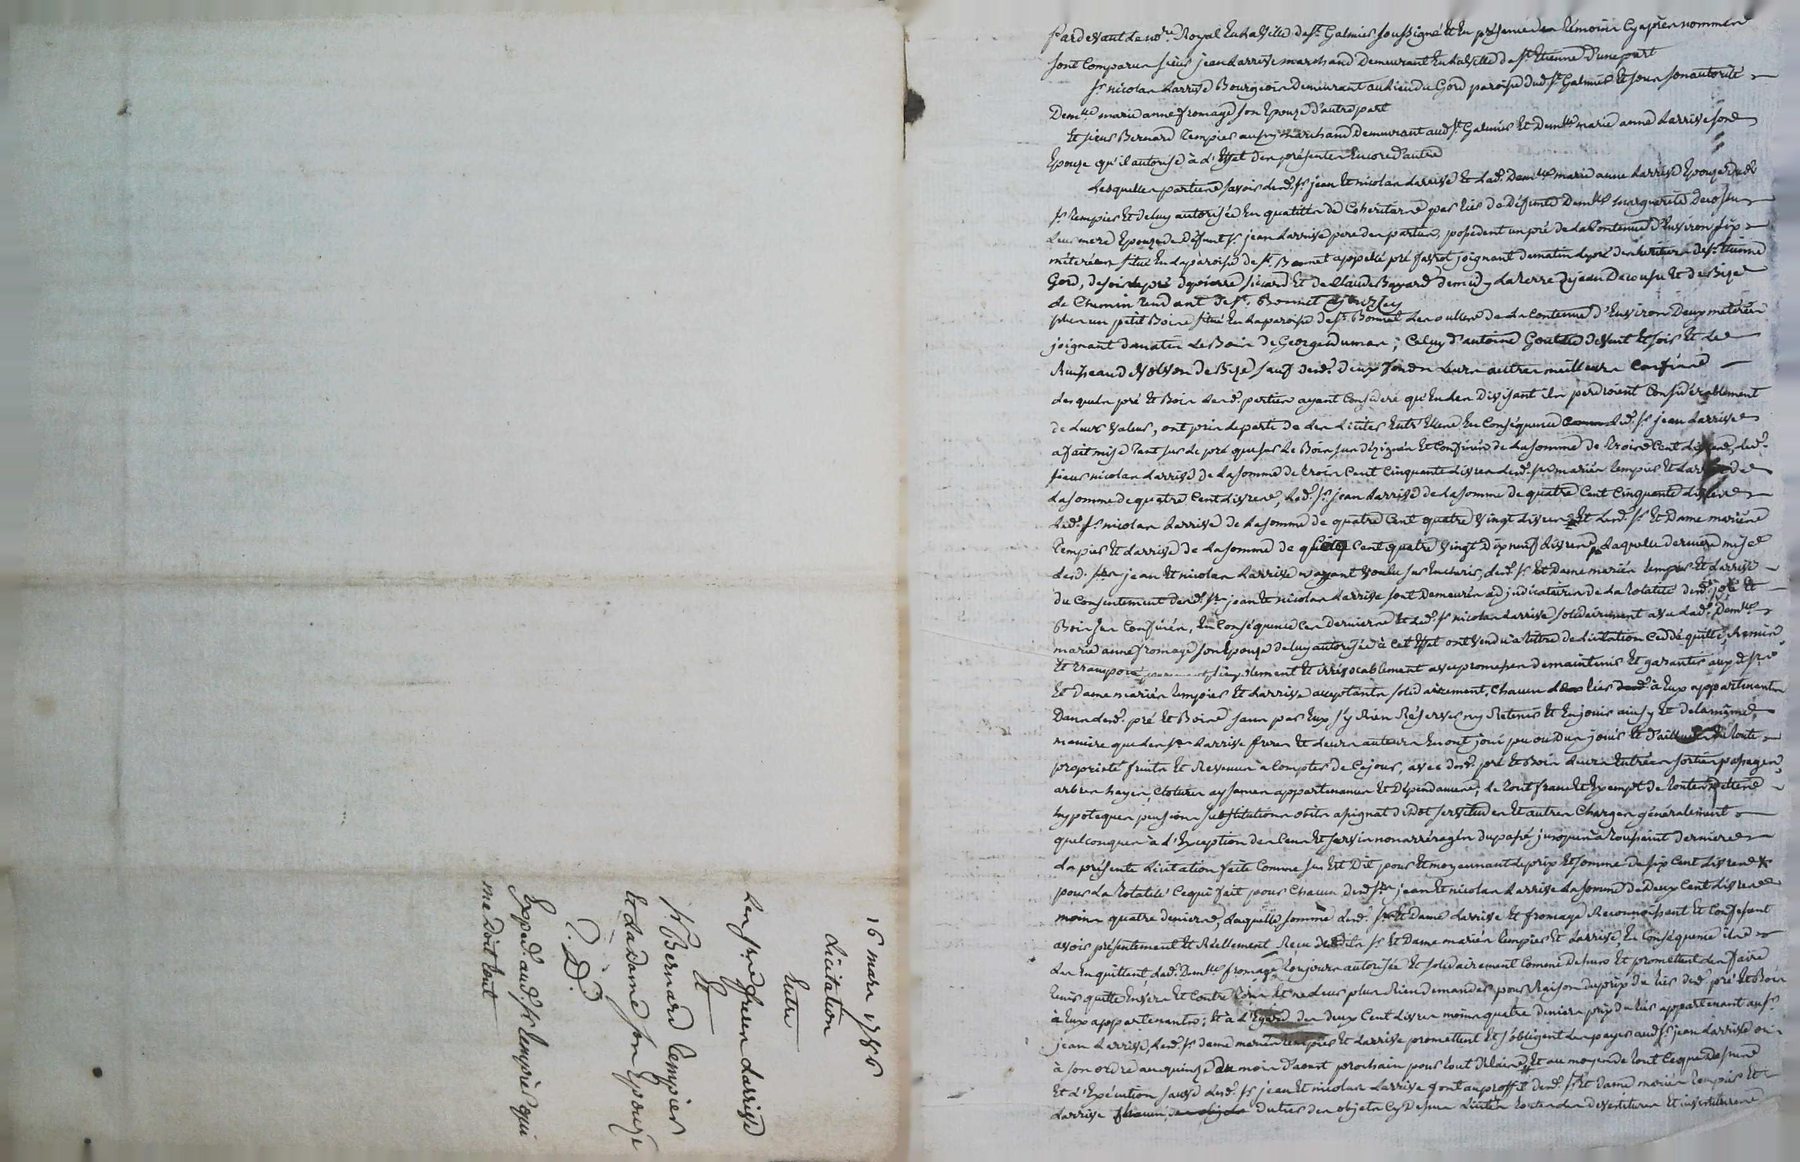 16 mars 1786
Licitation
Entre
Les srs freres Larrivé
Et
sr Bernard Tempier
Et la Dame son Epouze
P. D.
Exped. aud. sr Tempier qui
me doit tout
Pardevant le nore. Royal En la ville de st. Galmier soussigné Et En présence des témoins Cy après nommés
sont Comparus sieur jean Larrivé marchand Demeurant En la ville de st. Etienne d'une part
sr nicolas Larrivé Bourgeois Demeurant au lieu du Gord paroisse dud. st. Galmier Et sous son autorité
Demlle marie anne fromage son Epouze d'autre part
Et sieur Bernard Tempier aussy marchand demeurant aud st. Galmier Et Demlle marie anne Larrivé son
Epouze qu'il autorise à l'Effet des présentes Encore d'autre
Lesquelles parties savoir lesd. srs jean Et nicolas Larrivé Et lad. Demlle marie anne Larrivé Epouze dud.
sr Tempier Et de luy autorisée En qualité de Coheritiers par tiers de Défunte Demlle marguerite
leur mere Epouze de Défunt sr jean Larrivé pere des parties, possedent un pré de la Contenue d'Environ six
méterées situé En la paroisse de st. Bonnet appellé pré joignant de matin le pré des heritiers de st. Etienne
Gord, de soir le pré de pierre sicard Et de Claude Bayard de midy la terre de jean Et de Bize
le Chemin tendant de st. Bonnet
plus un petit Bois situé En la paroisse de st. Bonnet Les oulles de la Contenue d'Environ Deux méterées
joignant de matin le Bois de George dumas; Celuy d'antoine de vent Et soir Et le
Ruisseau de Volvon de Bize sauf desd. deux fonds leurs autres meilleurs Confins
Lesquels pré Et Bois lesd. parties ayant Consideré qu'En les Divisant ils perdroient Considérablement
de leur valeur, ont pris le parti de les liciter Entr'Elles En Conséquence led. sr jean Larrivé
a fait mise tant sur le pré que sur le Bois sus désignés Et Confinés de la somme de trois Cent livres, led.
sieur nicolas Larrivé de la somme de trois Cent Cinquante livres lesd. srs mariés Tempier Et Larrivé de
la somme de quatre Cent livres, led. sr. jean Larrivé de la somme de quatre Cent Cinquante livres
led. sr nicolas Larrivé de la somme de quatre Cent quatre vingt livres Et lesd. sr Et Dame mariés
Tempier Et Larrivé de la somme de Cent quatre vingt Dix neuf livres, laquelle derniere mise
lesd. srs jean Et nicolas Larrivé n'ayant voulu sur Encherir, lesd. sr Et Dame mariés Tempier Et Larrivé
du Consentement desd. srs jean Et nicolas Larrivé sont Demeurés adjudicataires de la totalité desd. pré Et
Bois sus Confinés, En Conséquence Ces derniers Et led. sr nicolas Larrivé solidairement avec lad. Demlle
marie anne fromage son Epouze de luy autorisée à Cet Effet ont vendu à titre de licitation Ceddé quitté, Remis
Et transporté simplement Et irrévocablement avec promesse de maintenir Et garantir auxd. sr
Et dame mariés Tempier Et Larrivé acceptants solidairement, Chacun tiers à Eux appartenants
Dans lesd. pré Et Bois sans par Eux s'y Rien Réserver ny Retenir Et En jouir ainsy Et de la même
maniere que les srs Larrivé freres Et leurs auteurs En ont joui pu ou Dû jouir Et d'ailleurs En toute
propriété fruits Et Revenus à Compter de Ce jour, avec desd. pré Et Bois leurs Entrées sorties passages
arbres hayes, clotures aysances appartenances Et Dépendances; le tout franc Et Exempt de toutes dettes
hypoteques pensions substitutions obits servitudes Et autres Charges généralement
quelconques à l'Exception des Cens Et servis non arréragés du passé jusques à Toussaint derniere
La présente Licitation faite Comme sus Est Dit pour Et moyennant le prix Et somme de six Cent livres
pour La totalité Ce qui fait pour Chacun desd. srs jean Et nicolas Larrivé La somme de Deux Cent livres
moins quatre deniers, laquelle somme lesd. sr Et Dame Larrivé Et fromage Reconnoissent Et Confessent
avoir présentement Et Réellement Reçu desdits sr Et Dame mariés Tempier Et Larrivé, En Conséquence ils
les En quittent, lad. Demlle fromage toujours autorisée Et solidairement Comme Dessus Et promettent les faire
tenir quitte Envers Et Contre tous Et ne leur plus Rien demander pour Raison du prix du tiers desd. pré Et Bois
à Eux appartenants; Et à l'Egard des deux Cent livres moins quatre deniers prix du tiers appartenant au sr.
jean Larrivé, lesd. sr dame mariés Tempier Et Larrivé promettent Et s'obligent les payer aud. sr jean Larrivé ou
à son ordre au quinze du mois d'aoust prochain pour tout délai, Et au moyen de tout Ce que Dessus
Et l'Exécution sauve lesd. srs jean Et nicolas Larrivé font au proffit desd. sr Et Dame mariés Tempier Et
Larrivé du tiers des objets Cy Dessus licités toutes devestitures Et investitures